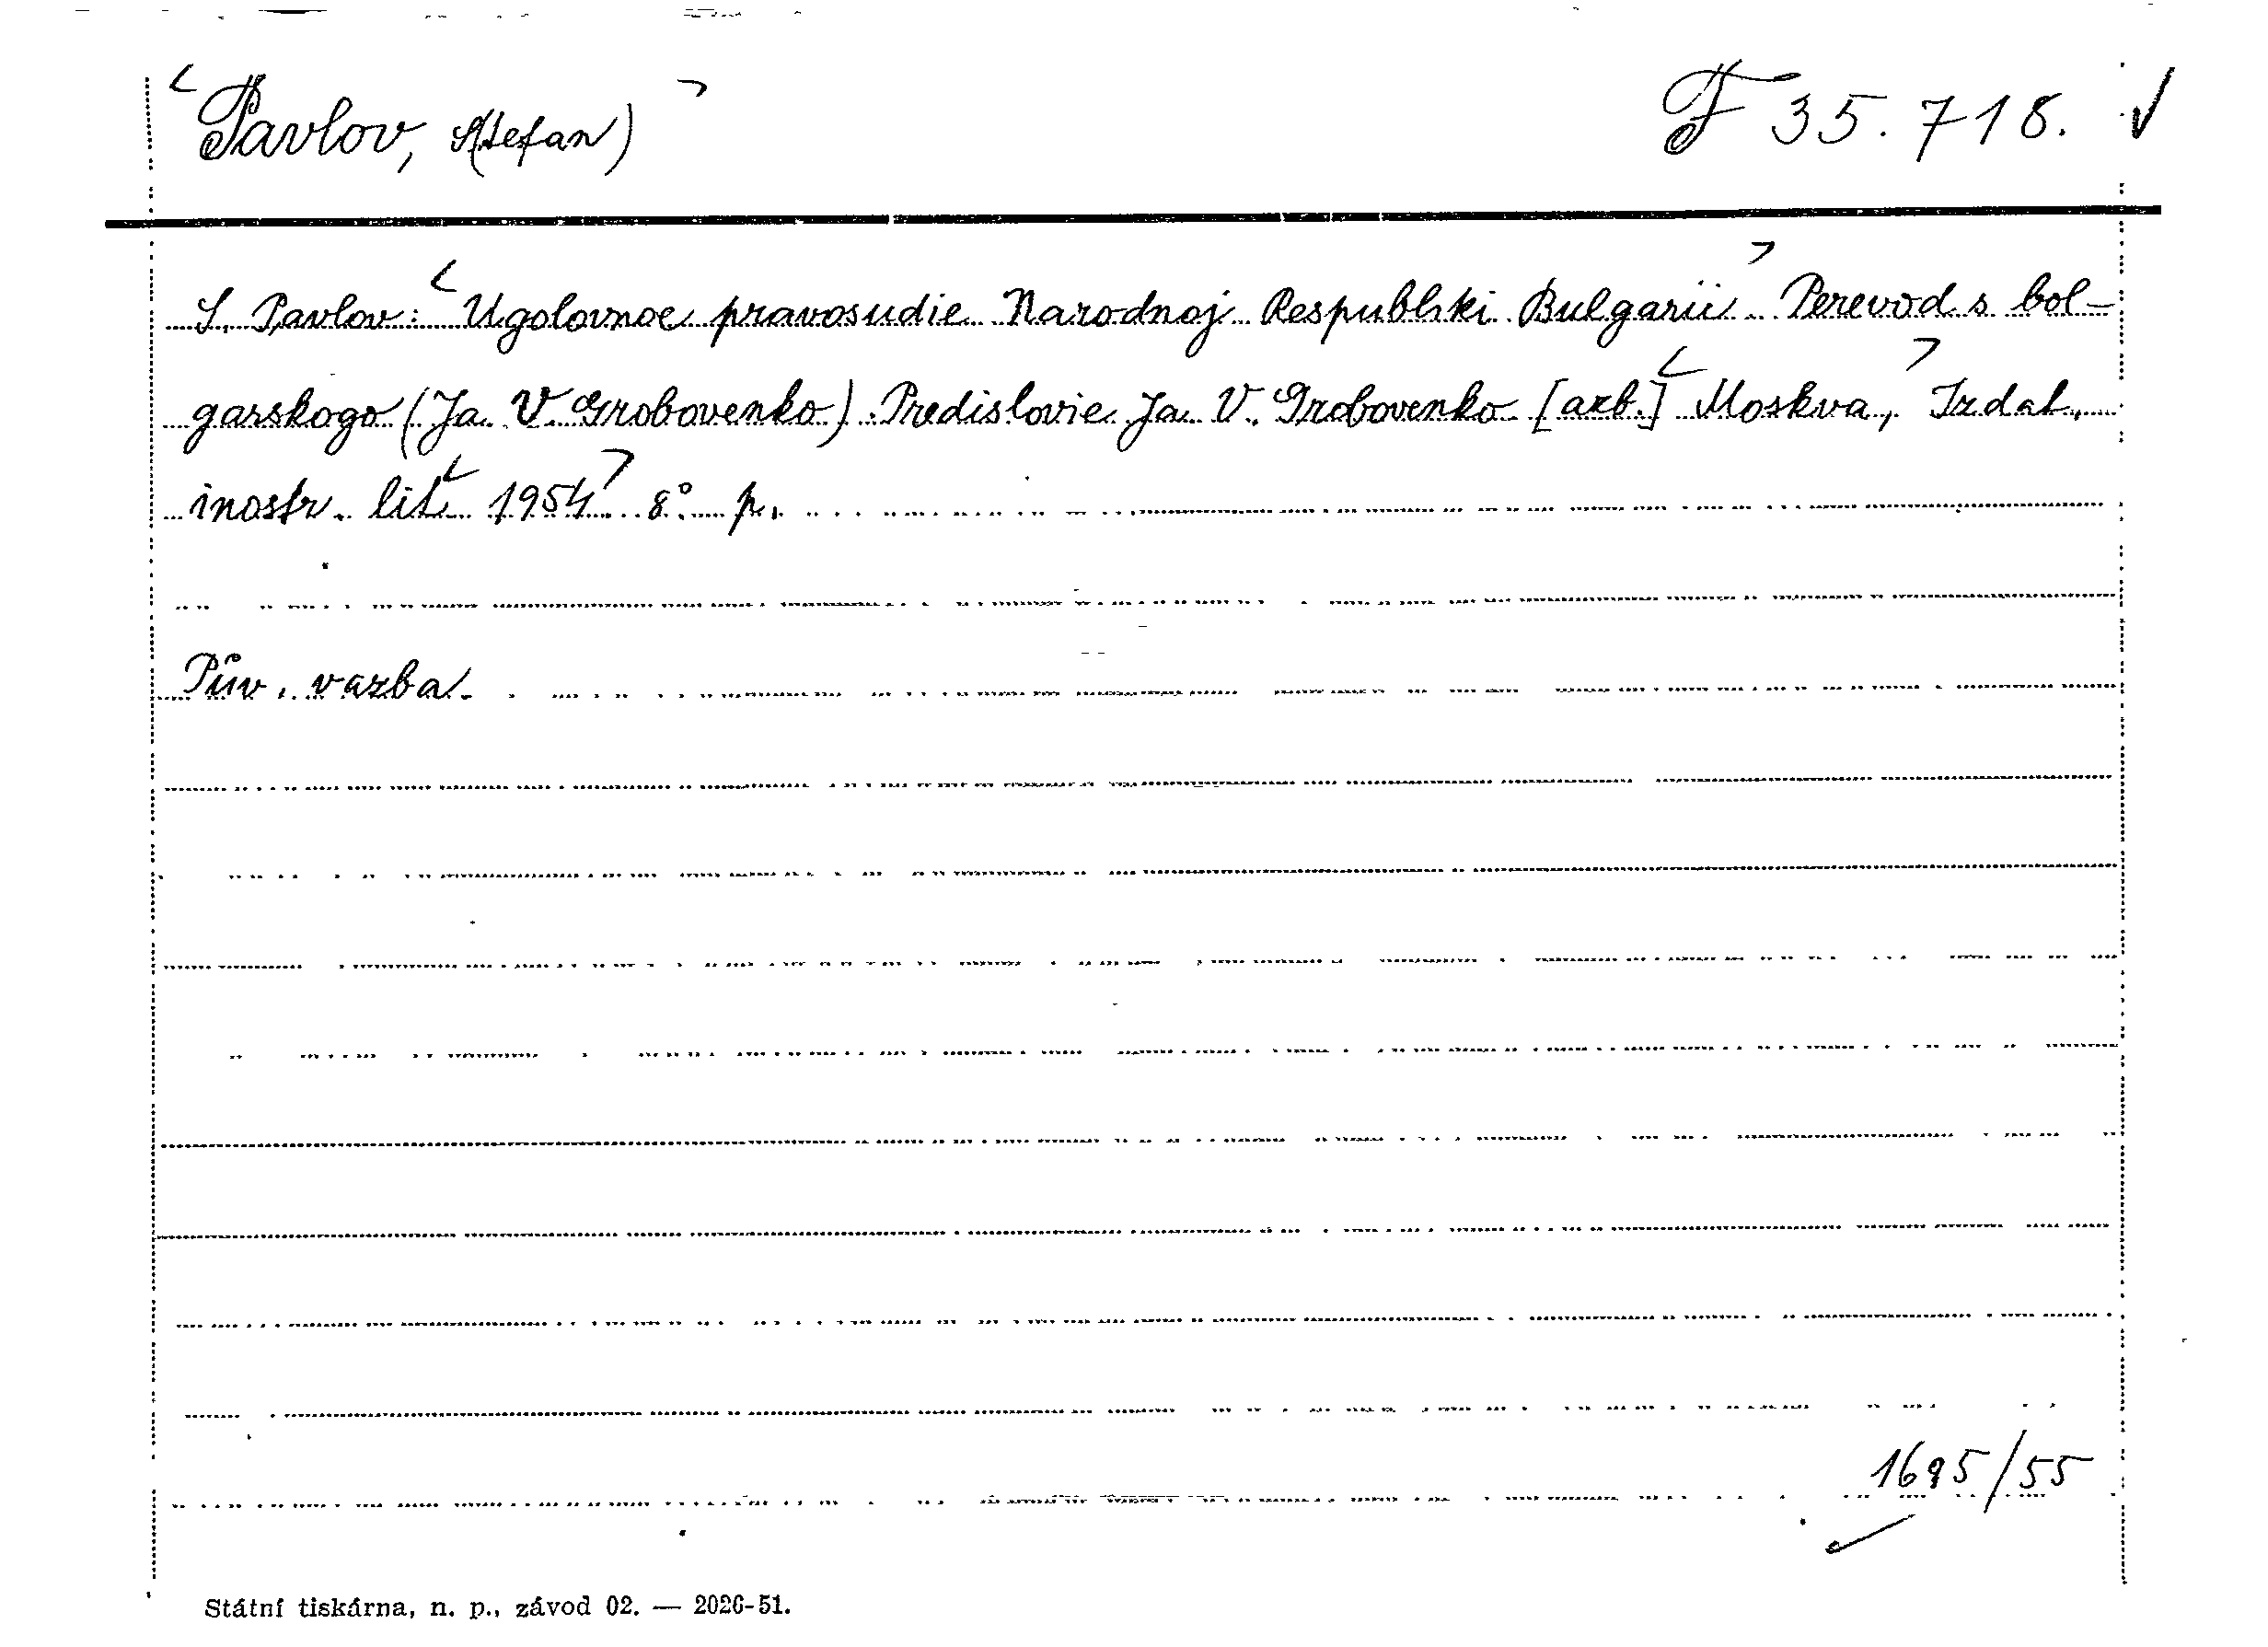 Pavlov, S(tefan) F 35.718.
S. Pavlov: Ugolovnoe pravosudie Narodnoj Respubliki Bulgarii. Perevod s bol-
garskogo (Ja. V. Grobovenko). Predislovie Ja. V. Grobovenko [azb.] Moskva, Izdat.
inostr. lit. 1954. 8° p.
Pův. vazba.
1695/55
Státní tiskárna, n. p., závod 02. — 2026-51.